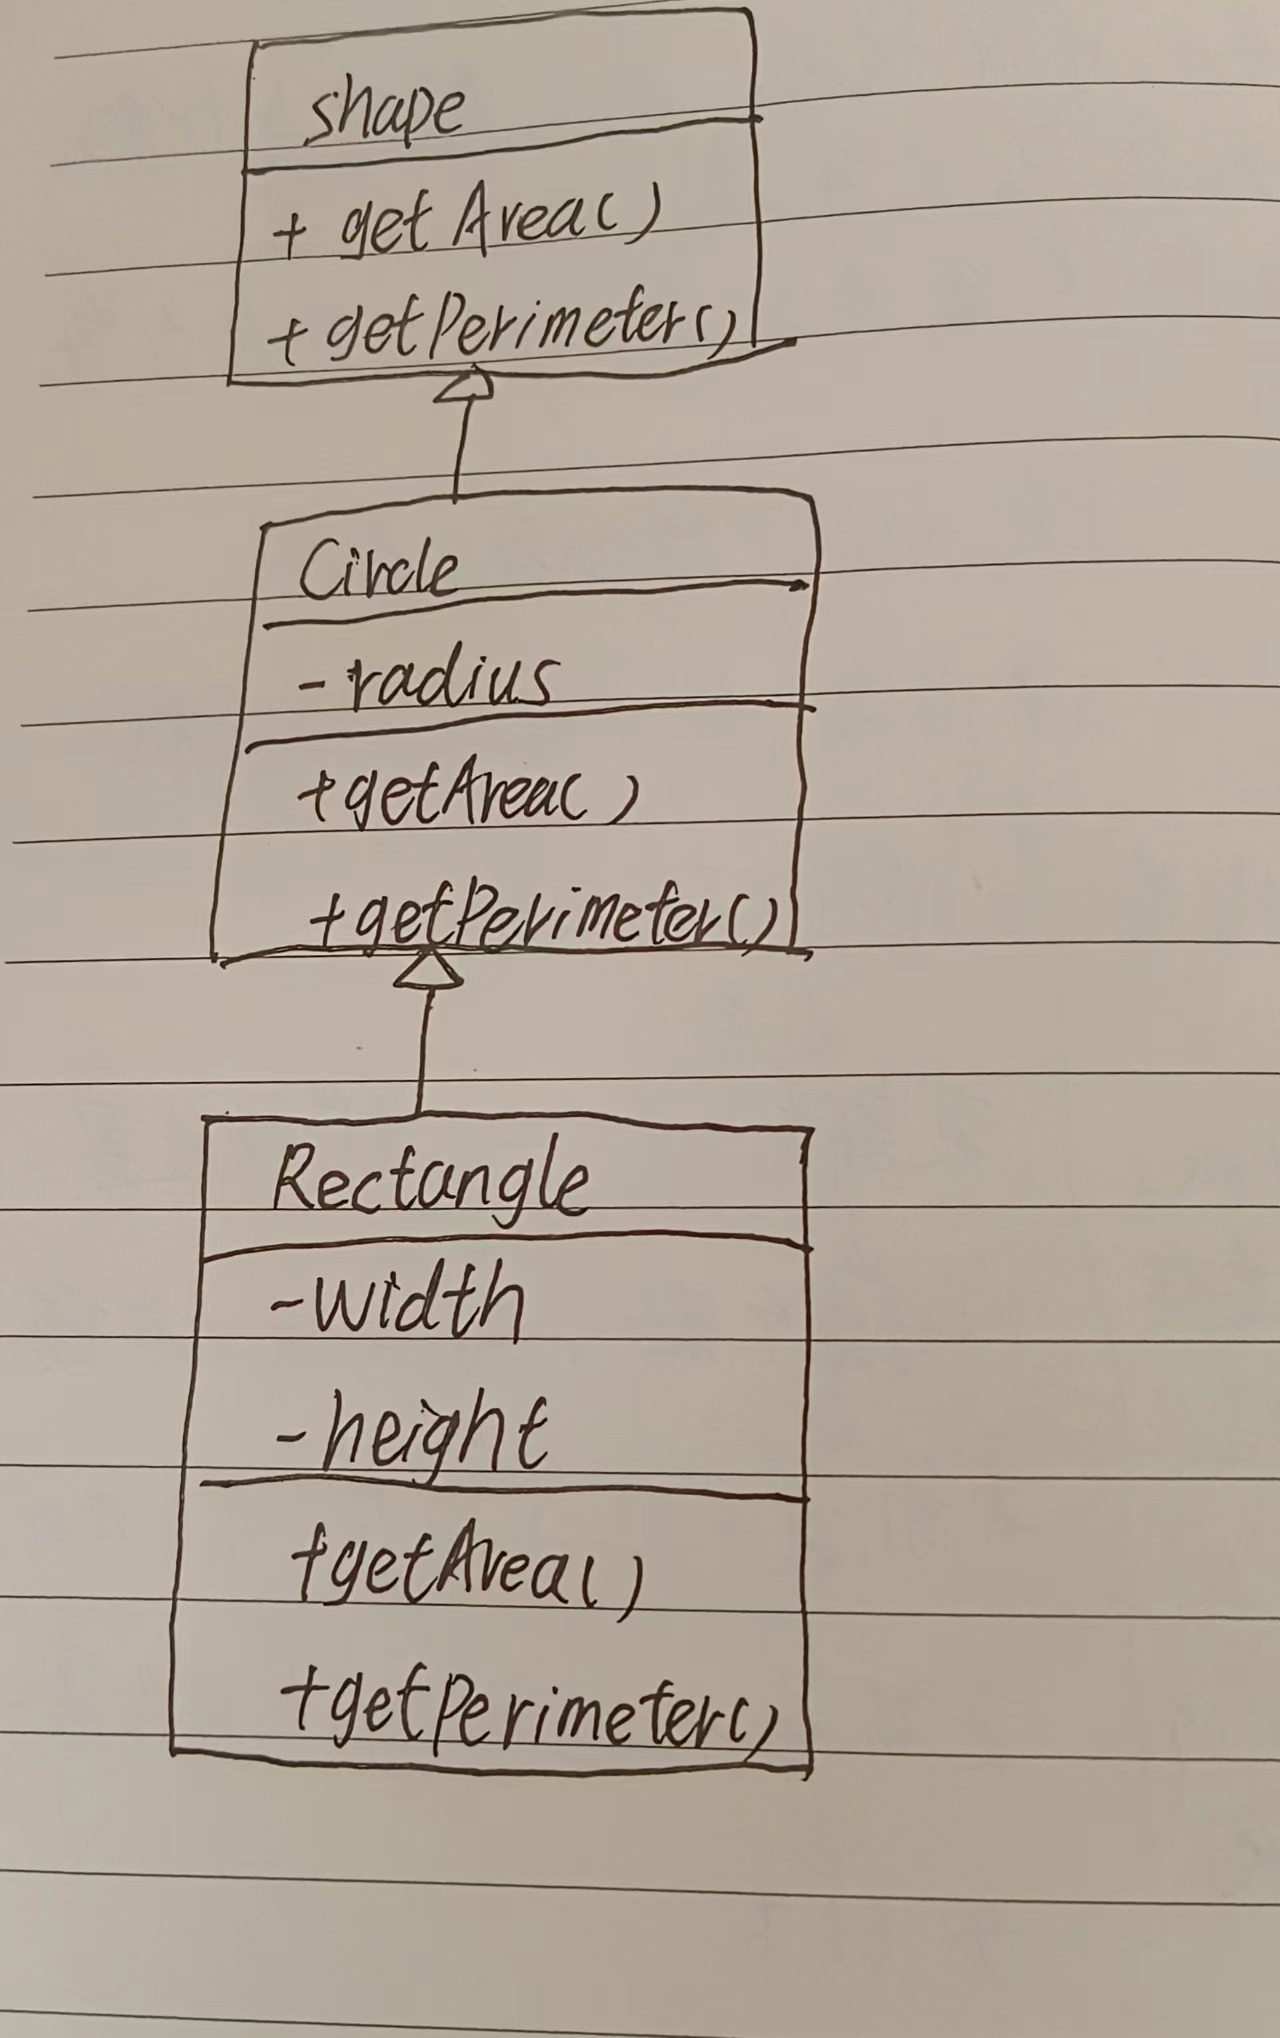 shape
+ getArea()
+ getPerimeter()
Circle
- radius
+getArea()
+getPerimeter()
Rectangle
-width
-height
+getArea()
+getPerimeter()